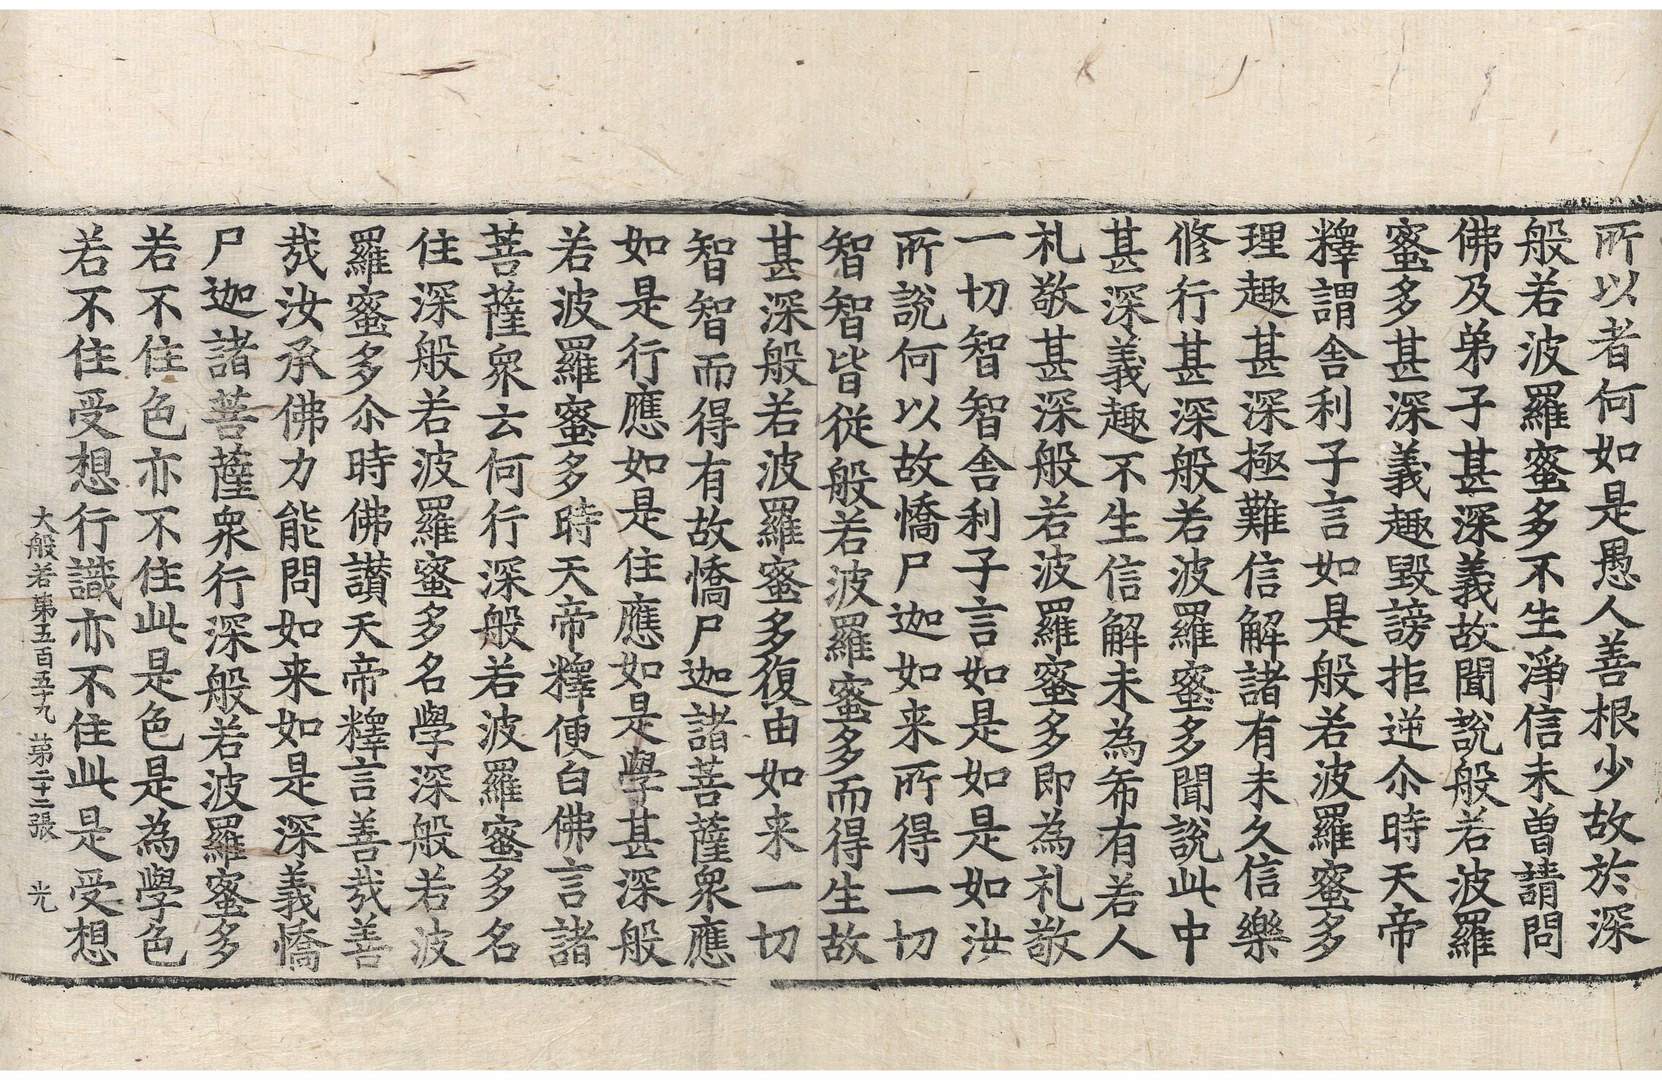 所以者何如是愚人善根少故於深
般若波羅蜜多不生淨信未曽請問
佛及弟子甚深義故聞說般若波羅
蜜多甚深義趣毀謗拒逆尒時天帝
釋謂舎利子言如是般若波羅蜜多
理趣甚深極難信解諸有未久信樂
修行甚深般若波羅蜜多聞說此中
甚深義趣不生信解未為希有若人
札敬甚深般若波羅蜜多即為札敬
一切智智舎利子言如是如是如汝
所說何以故憍尸迦如来所得一切
智智皆從般若波羅蜜多而得生故
甚深般若波羅蜜多復由如来一切
智智而得有故憍尸迦諸菩薩衆應
如是行應如是住應如是學甚深般
若波羅蜜多時天帝釋便白佛言諸
菩薩衆云何行深般若波羅蜜多名
住深般若波羅蜜多名學深般若波
羅蜜多尒時佛讃天帝釋言善哉善
哉汝承佛力能問如来如是深義憍
尸迦諸菩薩衆行深般若波羅蜜多
若不住色亦不住此是色是為學色
若不住受想行識亦不住此是受想
大般若第五百五十九 第二十二張 光